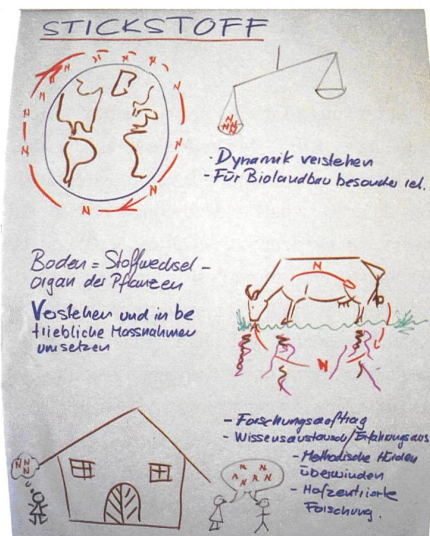 STICKSTOFF
N N N N N N N N N
N N N
· Dynamik verstehen
- Für Biolandbau besonder rel.
Boden = Stoffwechsel-
organ der Pflanzen
Verstehen und in be
triebliche Massnahmen
umsetzen
N
N
- Forschungsauftrag
- Wissensaustausch/Erfahrungsaus
- Methodische Hürden
überwinden
- Hofzentrierte
Forschung.
N N N
N N N N N